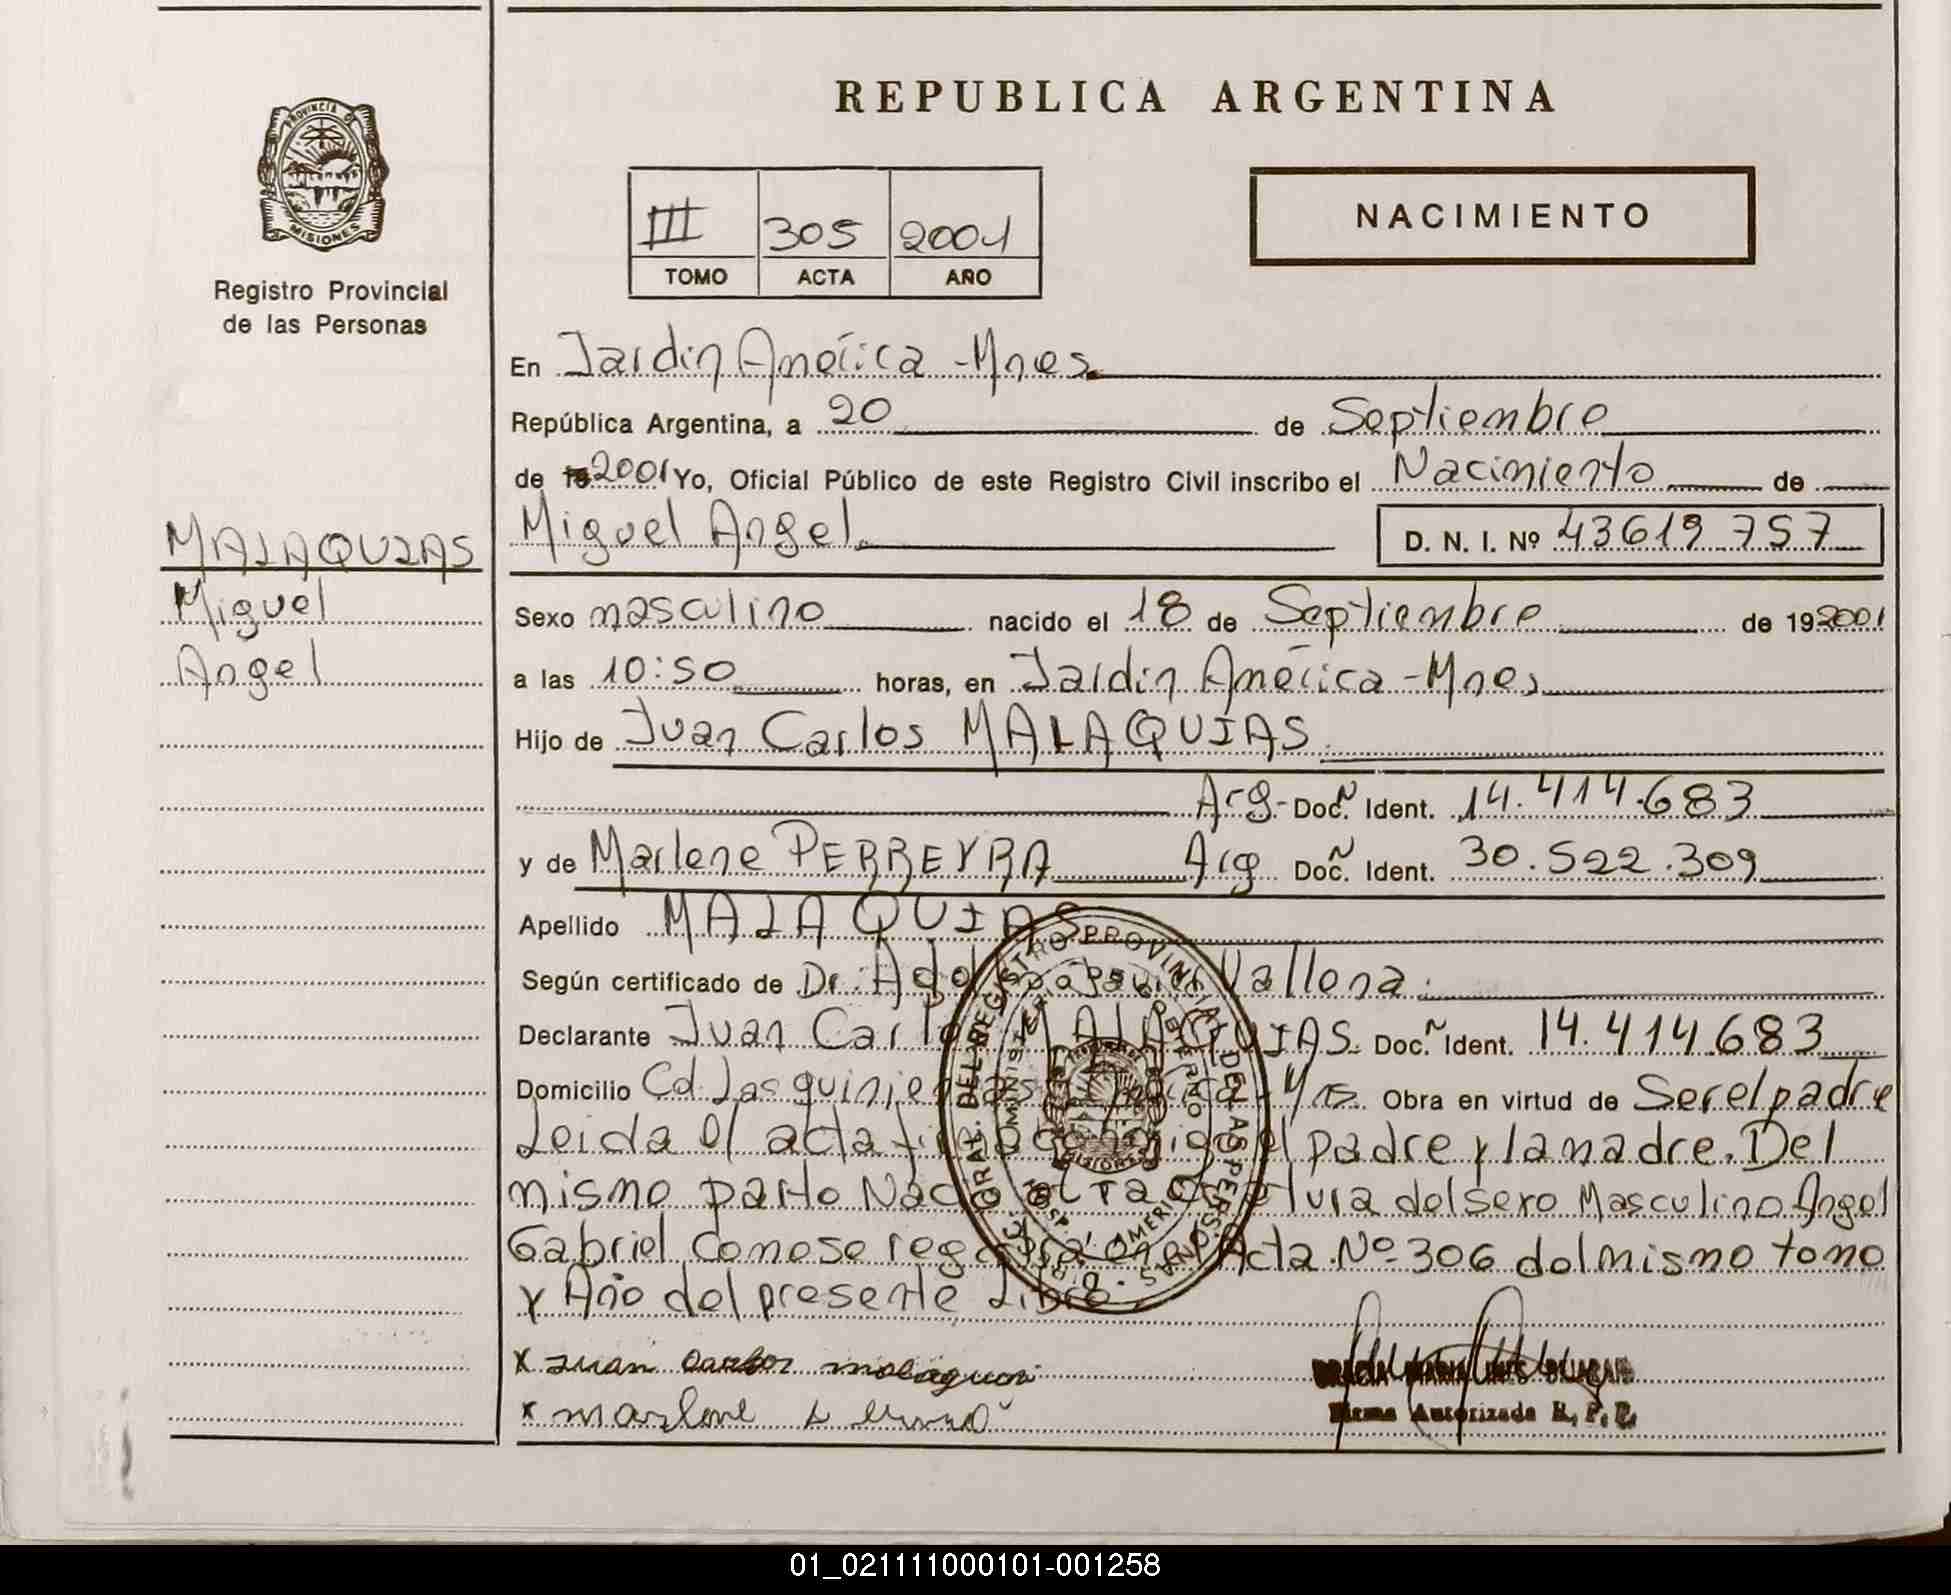 REPUBLICA ARGENTINA
PROVINCIA DE
MISIONES
Registro Provincial
de las Personas
III 305 2001
TOMO ACTA AÑO
NACIMIENTO
En Jardin América - Mnes.
República Argentina, a 20 de Septiembre
de 2001 Yo, Oficial Público de este Registro Civil inscribo el Nacimiento de
Miguel Angel D. N. I. Nº 43619757
MALAQUIAS
Miguel
Angel
Sexo masculino nacido el 18 de Septiembre de 192001
a las 10:50 horas, en Jardin América - Mnes
Hijo de Juan Carlos MALAQUIAS
Arg- Docñ. Ident. 14.414.683
y de Marlene PERREYRA Arg Docñ. Ident. 30.522.309
Apellido MALAQUIAS
Según certificado de Dr. Vallena
Declarante Juan Carlos MALAQUIAS. Docñ. Ident. 14.414.683
Domicilio Cd. Las quinientas Obra en virtud de Ser el padre
Leida el acta el padre y la madre. Del
mismo parto Nac del sexo Masculino Angel
Gabriel Como se en el Acta Nº 306 del mismo tomo
y Año del presente Libro
x Juan Carlos
x Marlene
Firma Autorizada R. P. P.
01_021111000101-001258